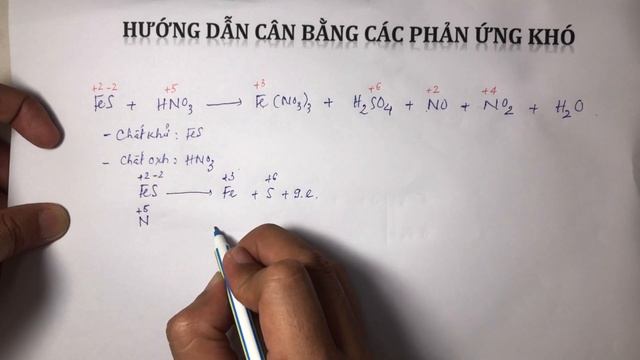 HƯỚNG DẪN CÂN BẰNG CÁC PHẢN ỨNG KHÓ
+2 -2 +5 +3 +6 +2 +4
FeS + HNO₃ → Fe(NO₃)₃ + H₂SO₄ + NO + NO₂ + H₂O
- Chất khử: FeS
- Chất oxh: HNO₃
+2 -2 +3 +6
FeS → Fe + S + 9.e.
+5
N